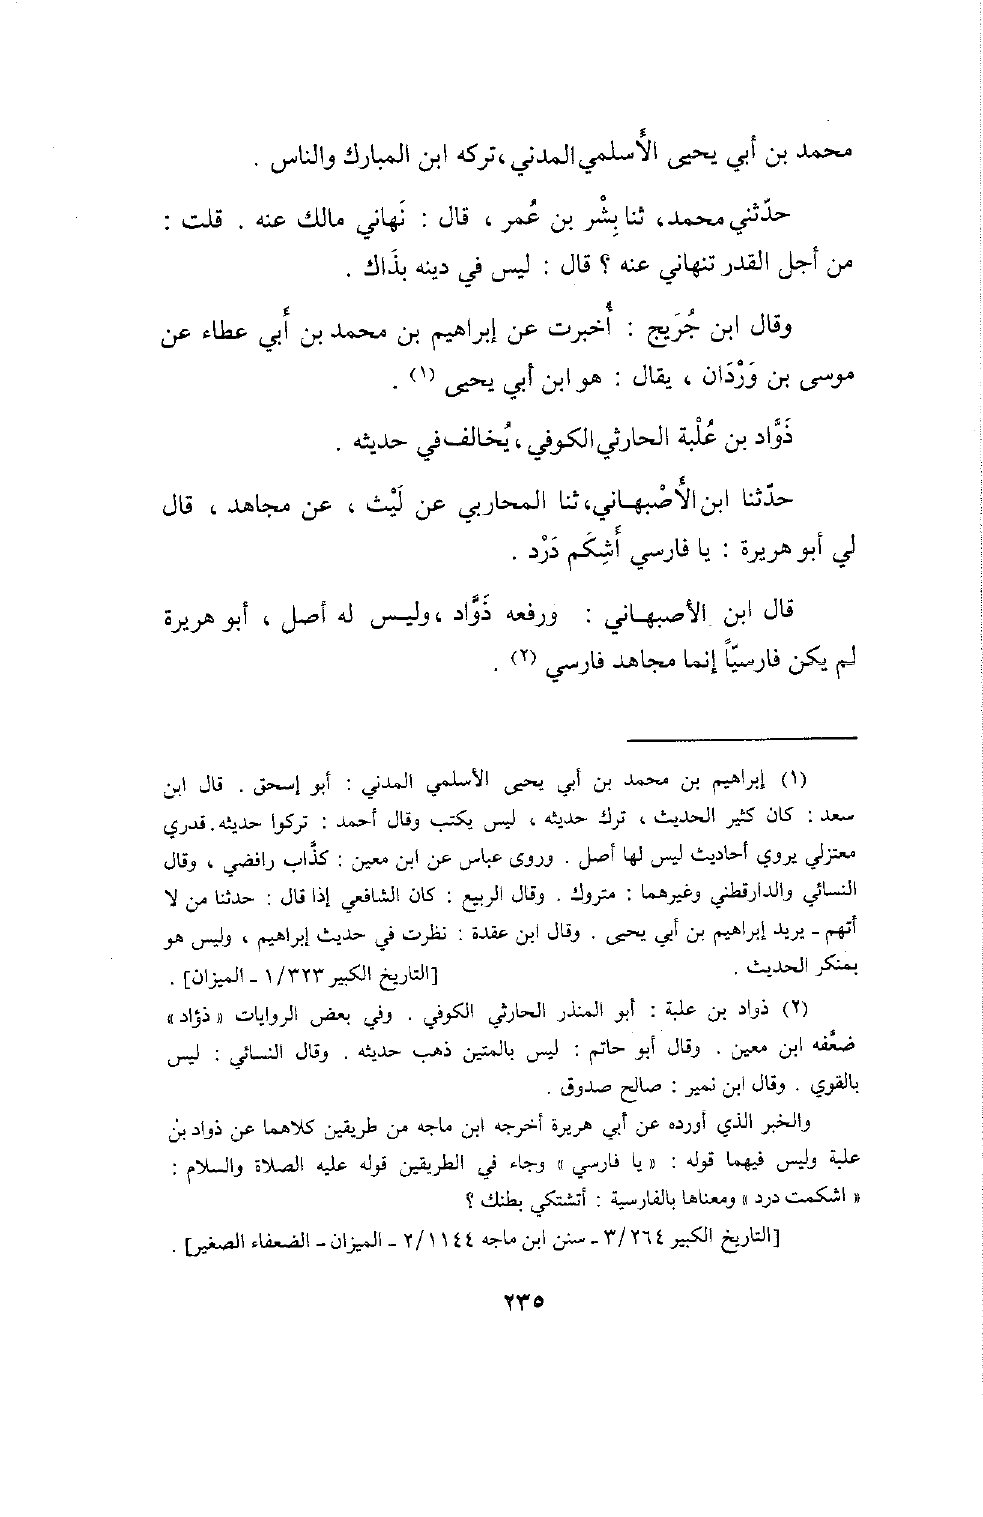 محمد بن أبي يحيى الأَسلمي المدني ، تركه ابن المبارك والناس .
حدّثني محمد ، ثنا بِشْر بن عُمر ، قال : نَهاني مالك عنه . قلت :
من أجل القدر تنهاني عنه ؟ قال : ليس في دينه بذَاك .
وقال ابن جُرَيج : أُخبرت عن إبراهيم بن محمد بن أَبي عطاء عن
موسى بن وَرْدَان ، يقال : هو ابن أبي يحيى (١) .
ذَوَّاد بن عُلْبة الحارثي الكوفي ، يُخالف في حديثه .
حدّثنا ابن الأَصْبهاني ، ثنا المحاربي عن لَيْث ، عن مجاهد ، قال
لي أبو هريرة : يا فارسي أَشِكَم دَرْد .
قال ابن الأصبهاني : ورفعه ذَوَّاد ، وليس له أصل ، أبو هريرة
لم يكن فارسيّاً إنما مجاهد فارسي (٢) .
(١) إبراهيم بن محمد بن أبي يحيى الأسلمي المدني : أبو إسحق . قال ابن
سعد : كان كثير الحديث ، ترك حديثه ، ليس يكتب وقال أحمد : تركوا حديثه . قدري
معتزلي يروي أحاديث ليس لها أصل . وروى عباس عن ابن معين : كذَّاب رافضي ، وقال
النسائي والدارقطني وغيرهما : متروك . وقال الربيع : كان الشافعي إذا قال : حدثنا من لا
أتهم - يريد إبراهيم بن أبي يحيى . وقال ابن عقدة : نظرت في حديث إبراهيم ، وليس هو
بمنكر الحديث . [التاريخ الكبير ١/٣٢٣ - الميزان] .
(٢) ذواد بن علبة : أبو المنذر الحارثي الكوفي . وفي بعض الروايات « ذؤاد »
ضعَّفه ابن معين . وقال أبو حاتم : ليس بالمتين ذهب حديثه . وقال النسائي : ليس
بالقوي . وقال ابن نمير : صالح صدوق .
والخبر الذي أورده عن أبي هريرة أخرجه ابن ماجه من طريقين كلاهما عن ذواد بن
علبة وليس فيهما قوله : « يا فارسي » وجاء في الطريقين قوله عليه الصلاة والسلام :
« اشكمت درد » ومعناها بالفارسية : أتشتكي بطنك ؟
[التاريخ الكبير ٣/٢٦٤ - سنن ابن ماجه ٢/١١٤٤ - الميزان - الضعفاء الصغير] .
٢٣٥